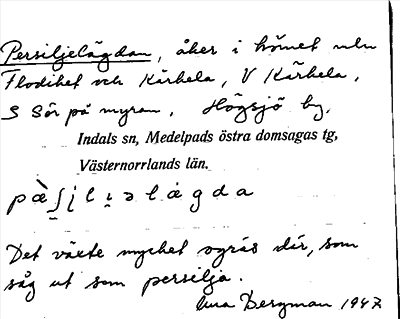 Persiljelägdan, åker i hörnet mln
Flodiket och Kärhela, V Kärhela,
S Sör på myran. Högsjö by,
Indals sn, Medelpads östra domsagas tg,
Västernorrlands län.
Det växte mycket ogräs där, som
såg ut som persilja.
Bergman 1947